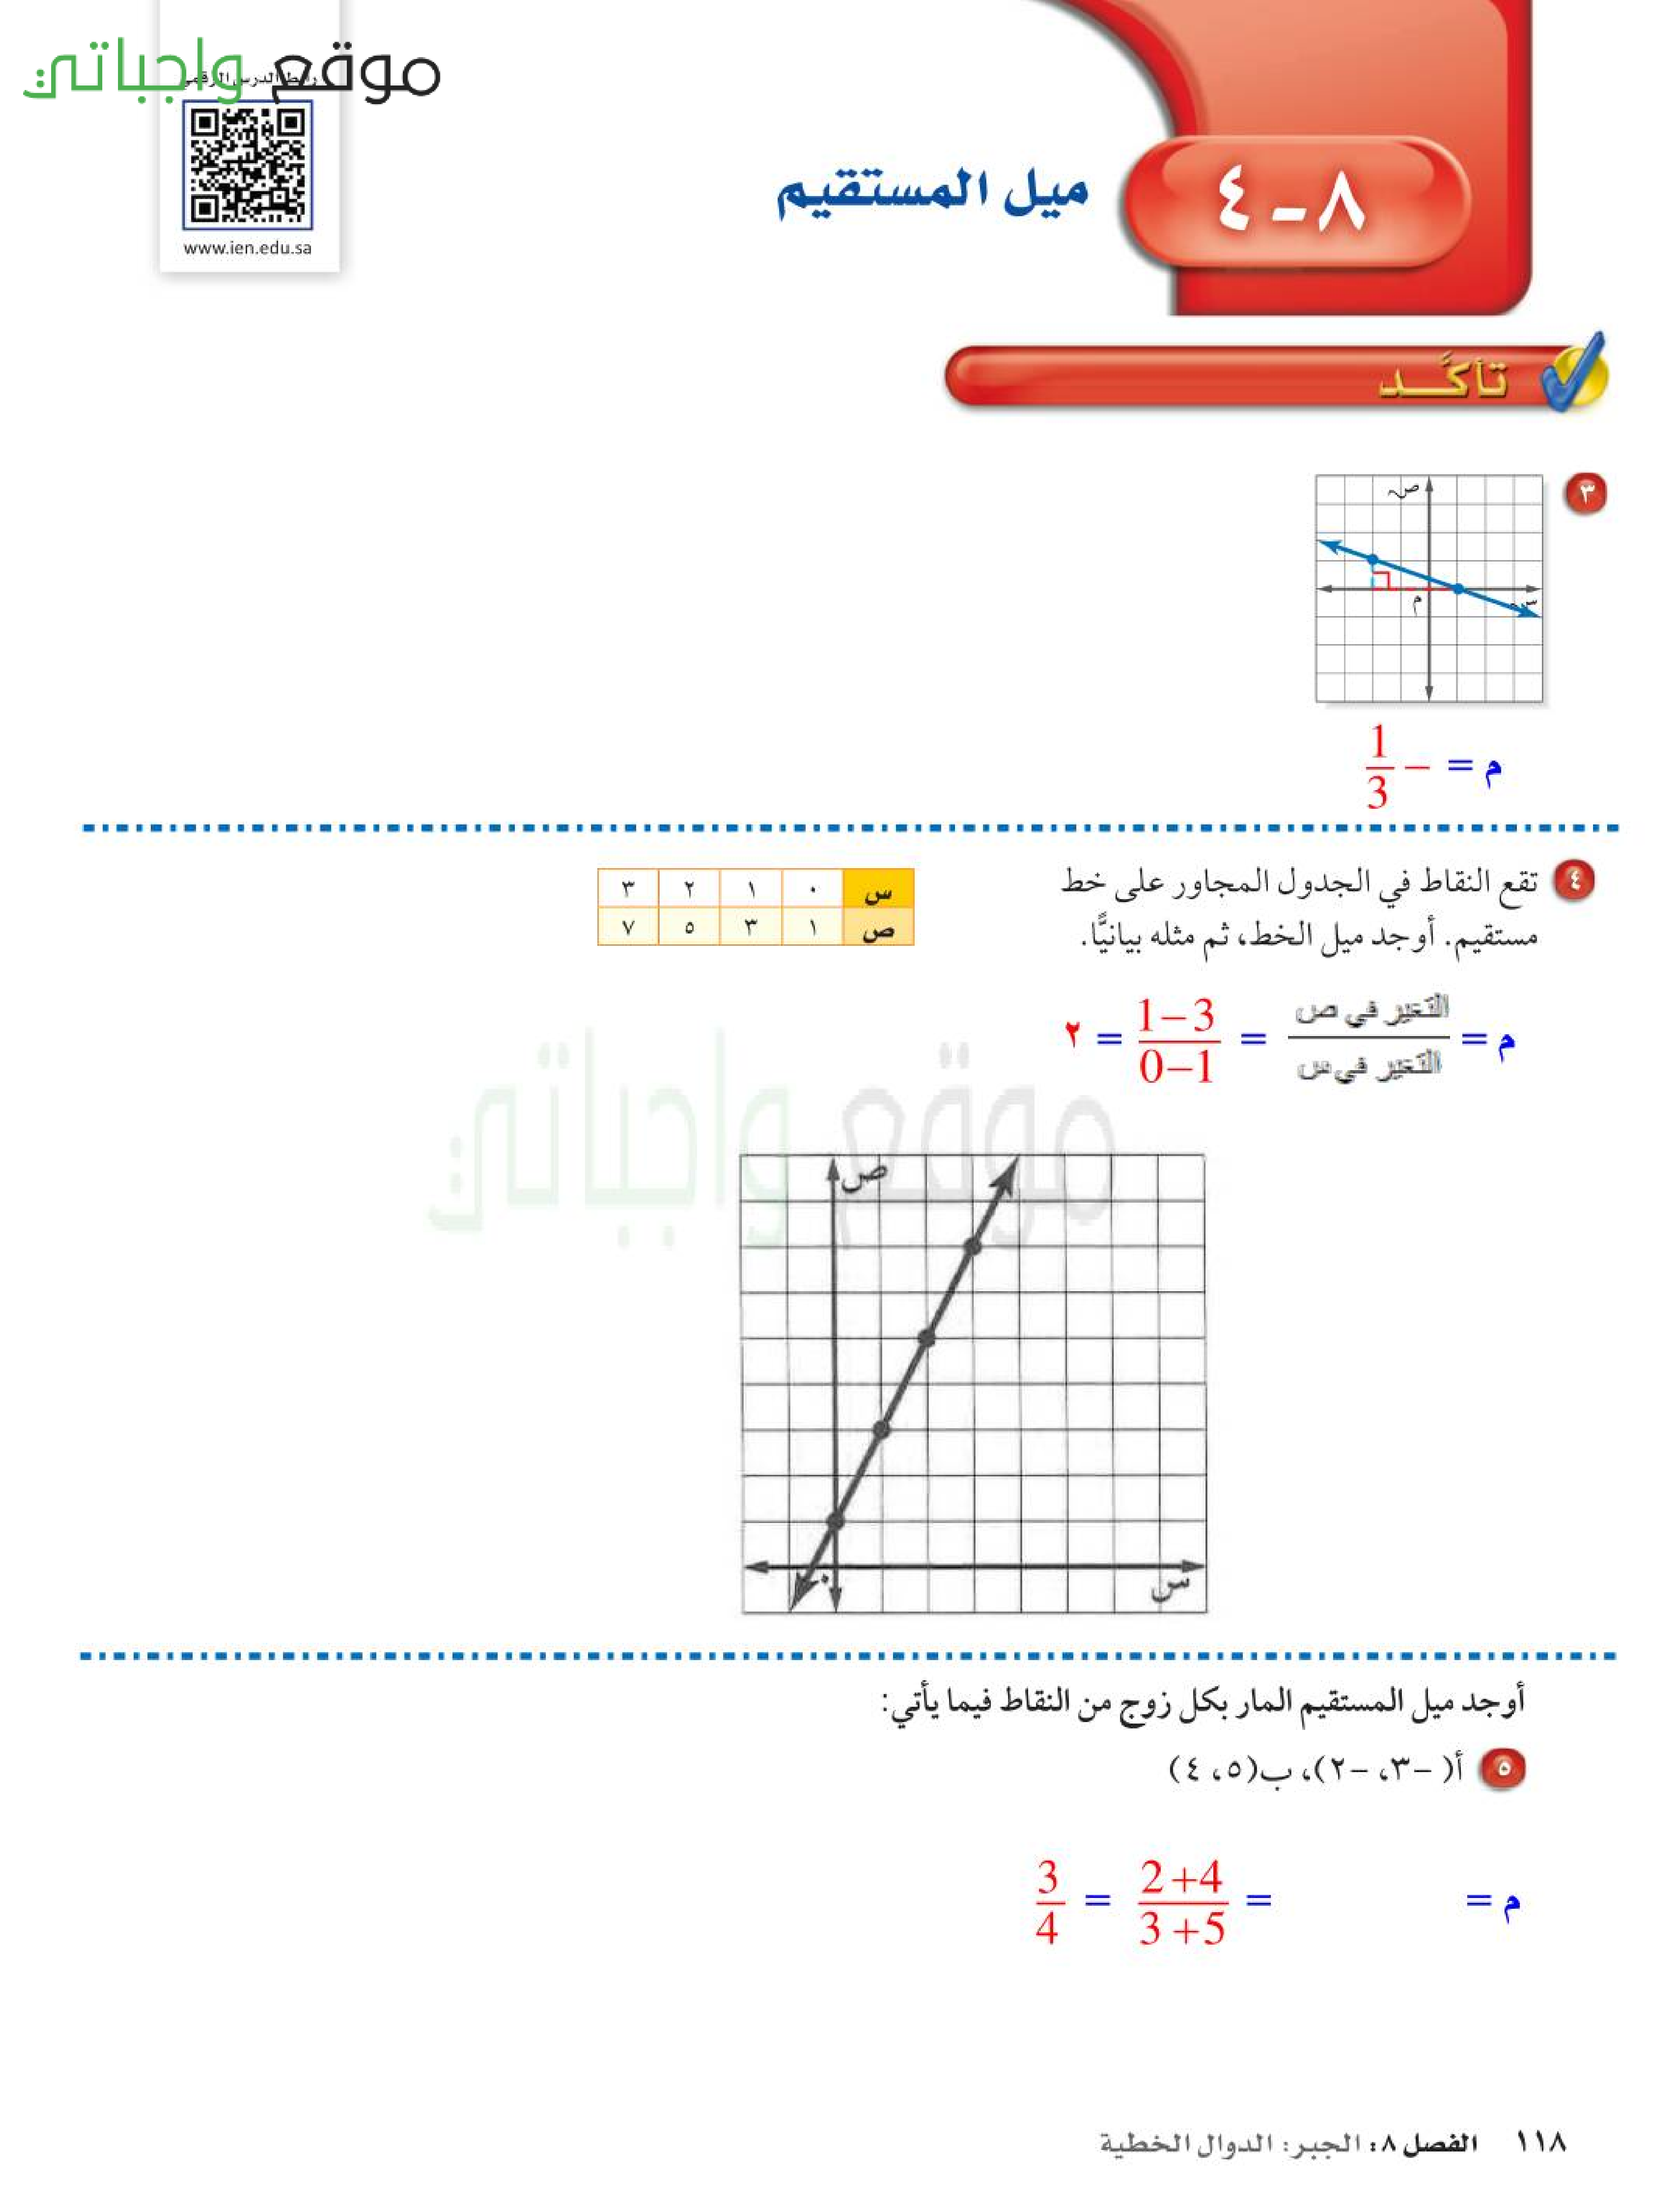 موقع واجباتي
رابط الدرس الرقمي
www.ien.edu.sa
٨-٤ ميل المستقيم
تأكَّد
٣
ص
م
س
م = - 1/3
٤ تقع النقاط في الجدول المجاور على خط
مستقيم. أوجد ميل الخط، ثم مثله بيانيًّا.
س ٠ ١ ٢ ٣
ص ١ ٣ ٥ ٧
م = التغير في ص / التغير في س = 1-3 / 0-1 = ٢
موقع واجباتي
ص
س
أوجد ميل المستقيم المار بكل زوج من النقاط فيما يأتي:
٥ أ( -٣، -٢)، ب(٥، ٤)
م = = 2+4 / 3+5 = 3/4
١١٨ الفصل ٨: الجبر: الدوال الخطية